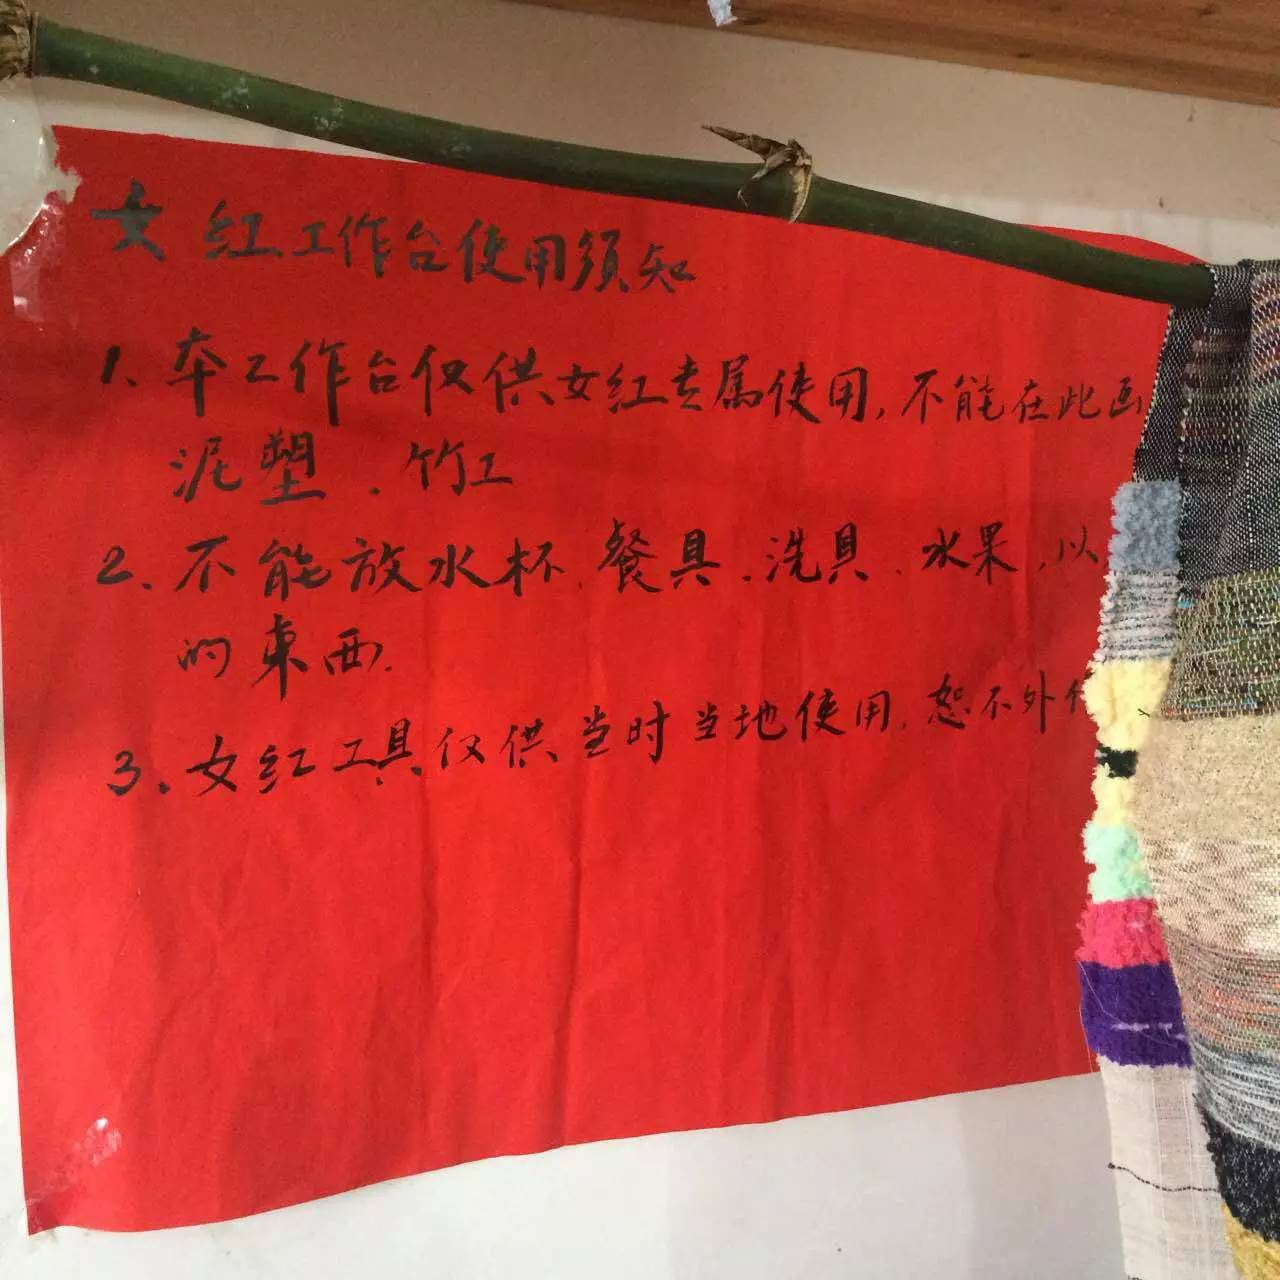 女红工作台使用须知
1、本工作台仅供女红专属使用,不能在此画
泥塑、竹工
2、不能放水杯、餐具、洗具、水果、以
的東西.
3、女红工具仅供当时当地使用,恕不外